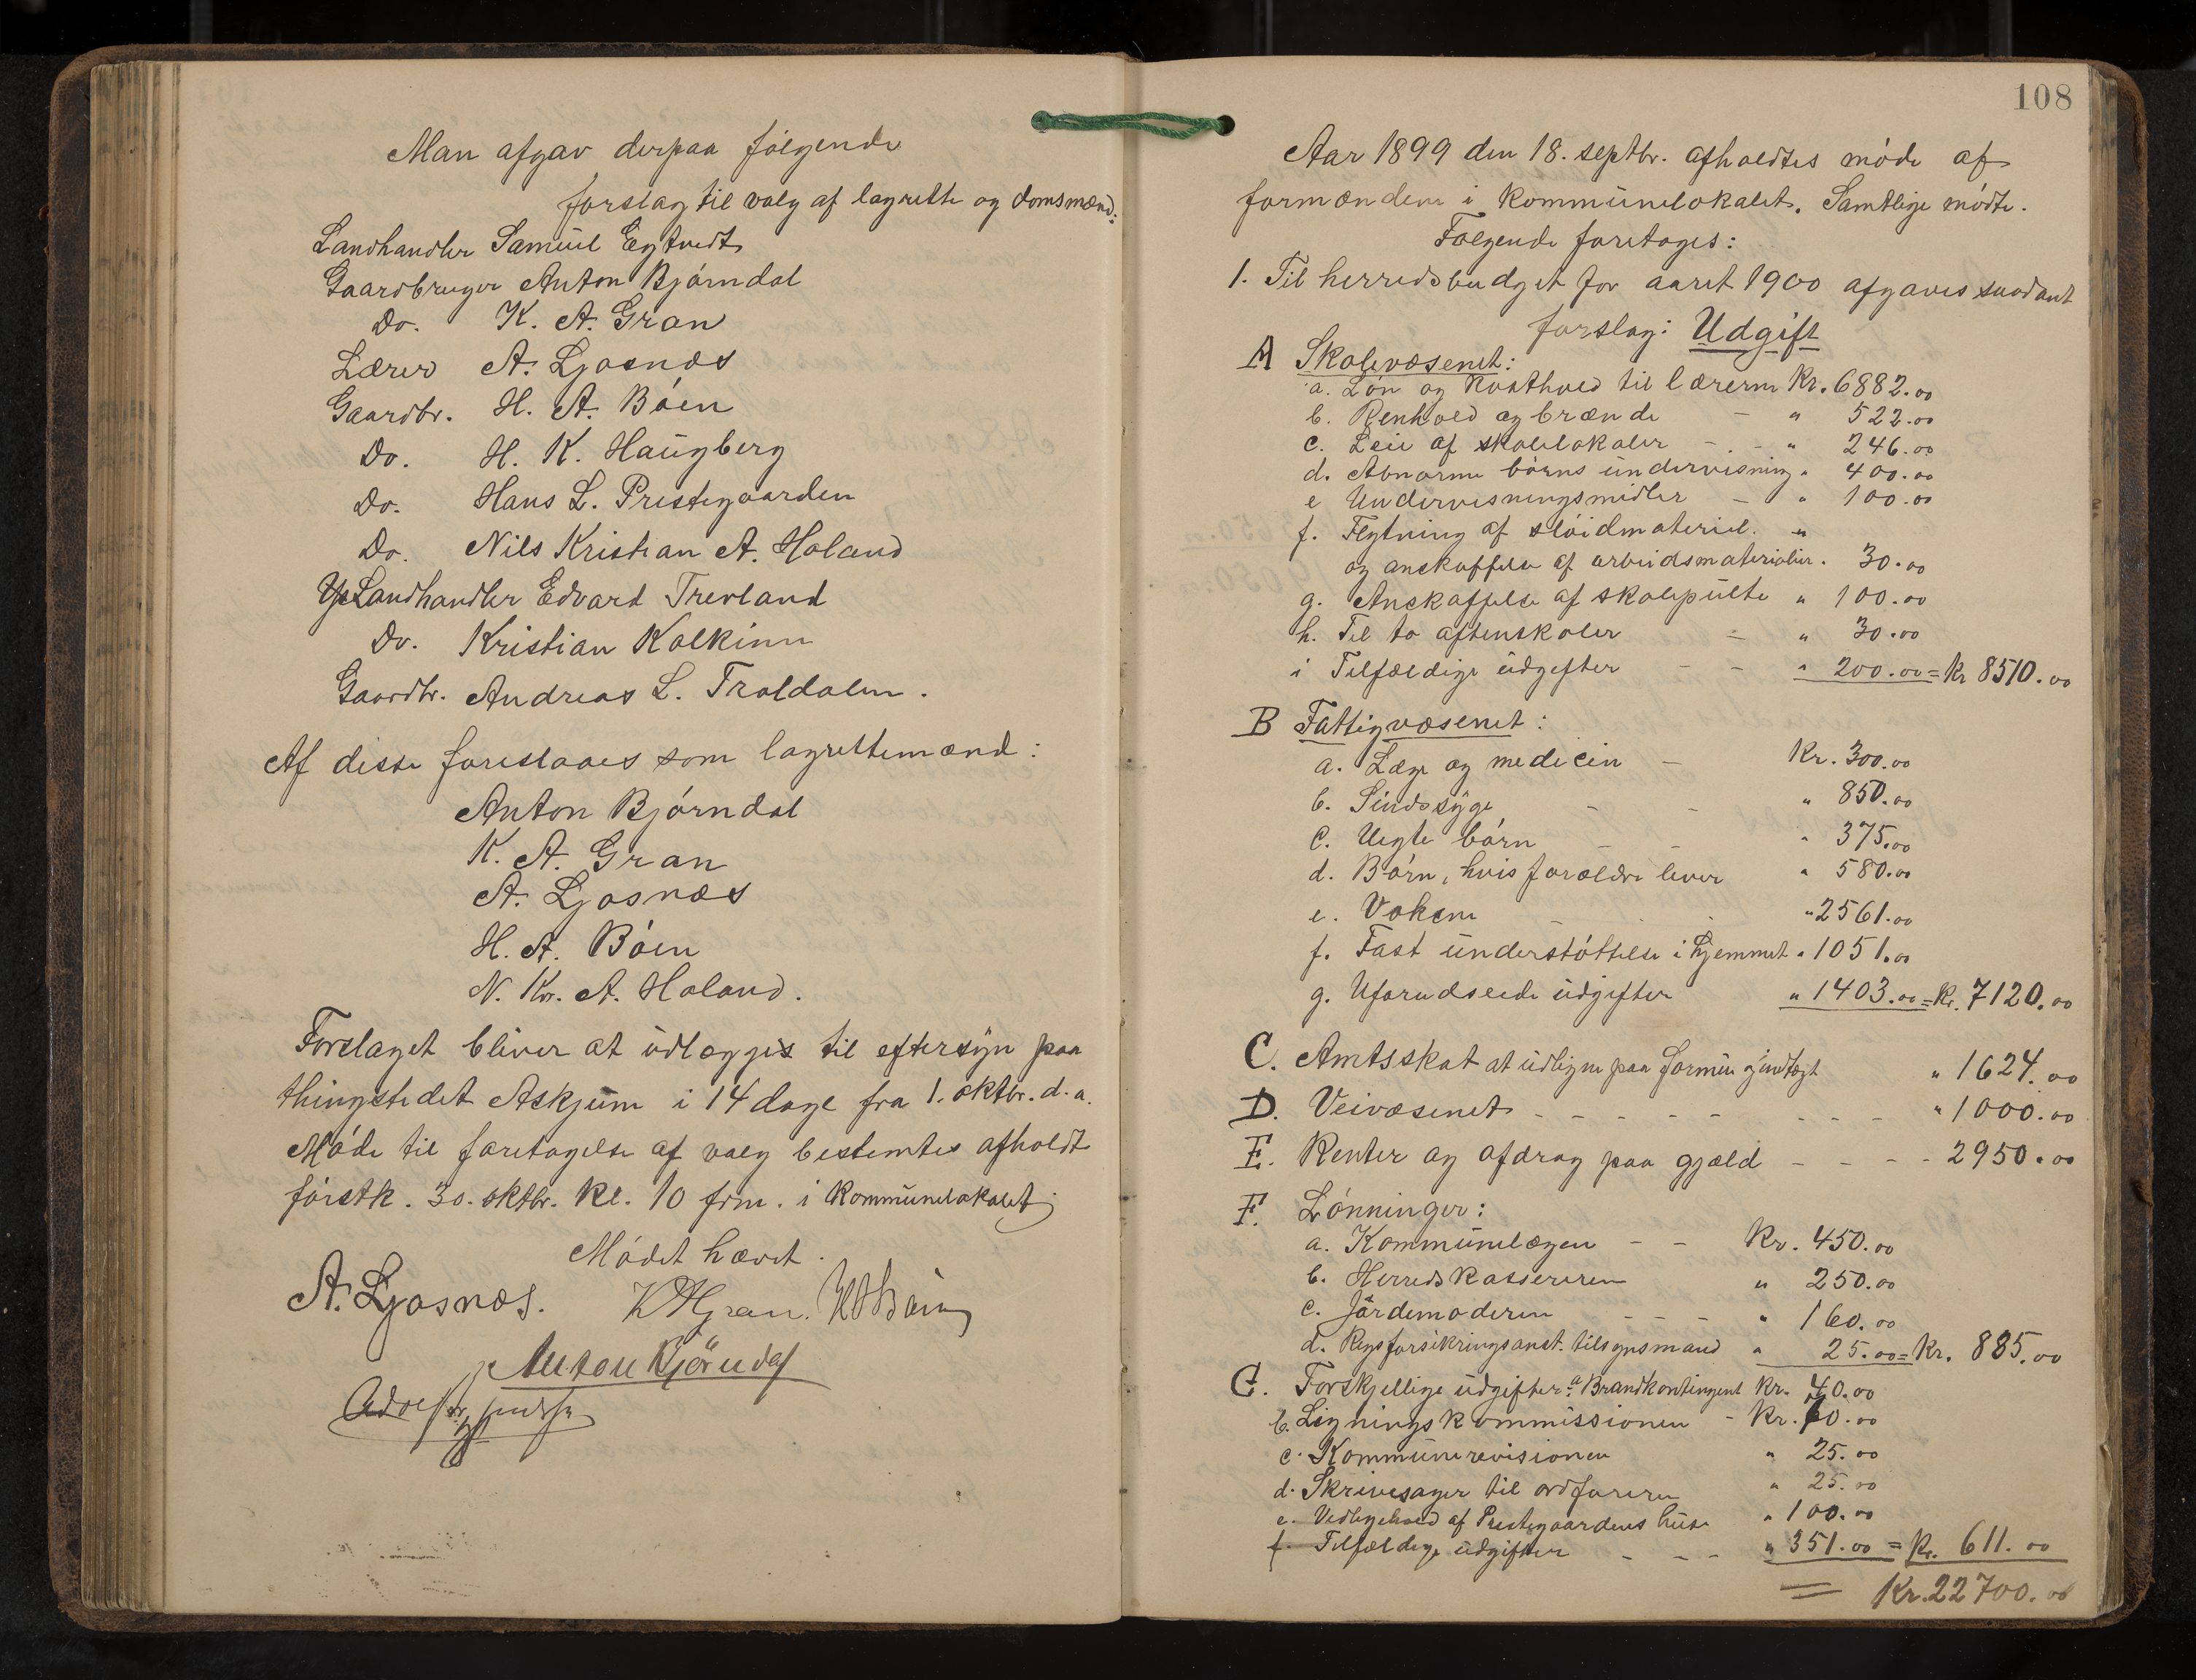 Man afgav derpaa følgende
forslag til valg af lagrette og domsmænd:
Landhandler Samuel Egtvedt
Gaardbruger Anton Bjørndal
Do. K. A. Gran
Lærer A. Ljosnæs
Gaardbr. H. A. Bøen
Do. H. K. Haugberg
Do. Hans L. Prestegaarden
Do. Nils Kristian A. Holand
Landhandler Edvard Trevland
Do. Kristian Kolkinn
Gaardbr. Andreas L. Traldalen.
Af disse foreslaaes som lagrettemænd:
Anton Bjørndal
K. A. Gran
A. Ljosnæs
H. A. Bøen
N. Kr. A. Holand.
Forslaget bliver at udlægges til eftersyn paa
thingstedet Askjum i 14 dage fra 1. oktbr. d. a.
Møde til foretagelse af valg bestemtes afholdt
førstk. 30. oktbr. kl. 10 frm. i kommunelokalet.
Mødet hævet.
A. Ljosnæs. K A Gran. H A Bøen
Anton Bjørndal
108
Aar 1899 den 18. septbr. afholdtes møde af
formændene i kommunelokalet. Samtlige mødte.
Følgende foretoges:
1. Til herredsbudget for aaret 1900 afgaves saadant
forslag: Udgift
A Skolevæsenet:
a. Løn og kosthold til lærerne Kr. 6882.00
b. Renhold og brænde - " 522.00
c. Leie af skolelokaler - - " 246.00
d. Abnorme børns undervisning " 400.00
e Undervisningsmidler - " 100.00
f. Flytning af sløidmateriel. "
og anskaffelse af arbeidsmaterialier. 30.00
g. Anskaffelse af skolepulte " 100.00
h. Til to aftenskoler - " 30.00
i Tilfældige udgifter - - " 200.00 = kr 8510.00
B Fattigvæsenet:
a. Læge og medicin - Kr. 300.00
b. Sindssyge - - " 850.00
c. Uegte børn - - " 375.00
d. Børn, hvis forældre lever " 580.00
e. Voksne - " 2561.00
f. Fast understøttelse i hjemmet " 1051.00
g. Uforudseede udgifter " 1403.00 = Kr. 7120.00
C. Amtsskat at udligne paa formue og indtægt " 1624.00
D. Veivæsenet - - - - - - - - " 1000.00
E. Renter og afdrag paa gjæld - - - - 2950.00
F. Lønninger:
a. Kommunelægen - - Kr. 450.00
b. Herredskassereren " 250.00
c. Jordemoderen - - - " 160.00
d. Rigsforsikringsanst. tilsynsmand " 25.00 = Kr. 885.00
G. Forskjellige udgifter: a Brandkontingent Kr. 40.00
b. Ligningskommissionen - Kr. 70.00
c. Kommunerevisionen " 25.00
d. Skrivesager til ordføreren " 25.00
e. Vedligehold af Prestegaardens huse " 100.00
f. Tilfældige udgifter - - - " 351.00 = Kr. 611.00
= Kr. 22700.00